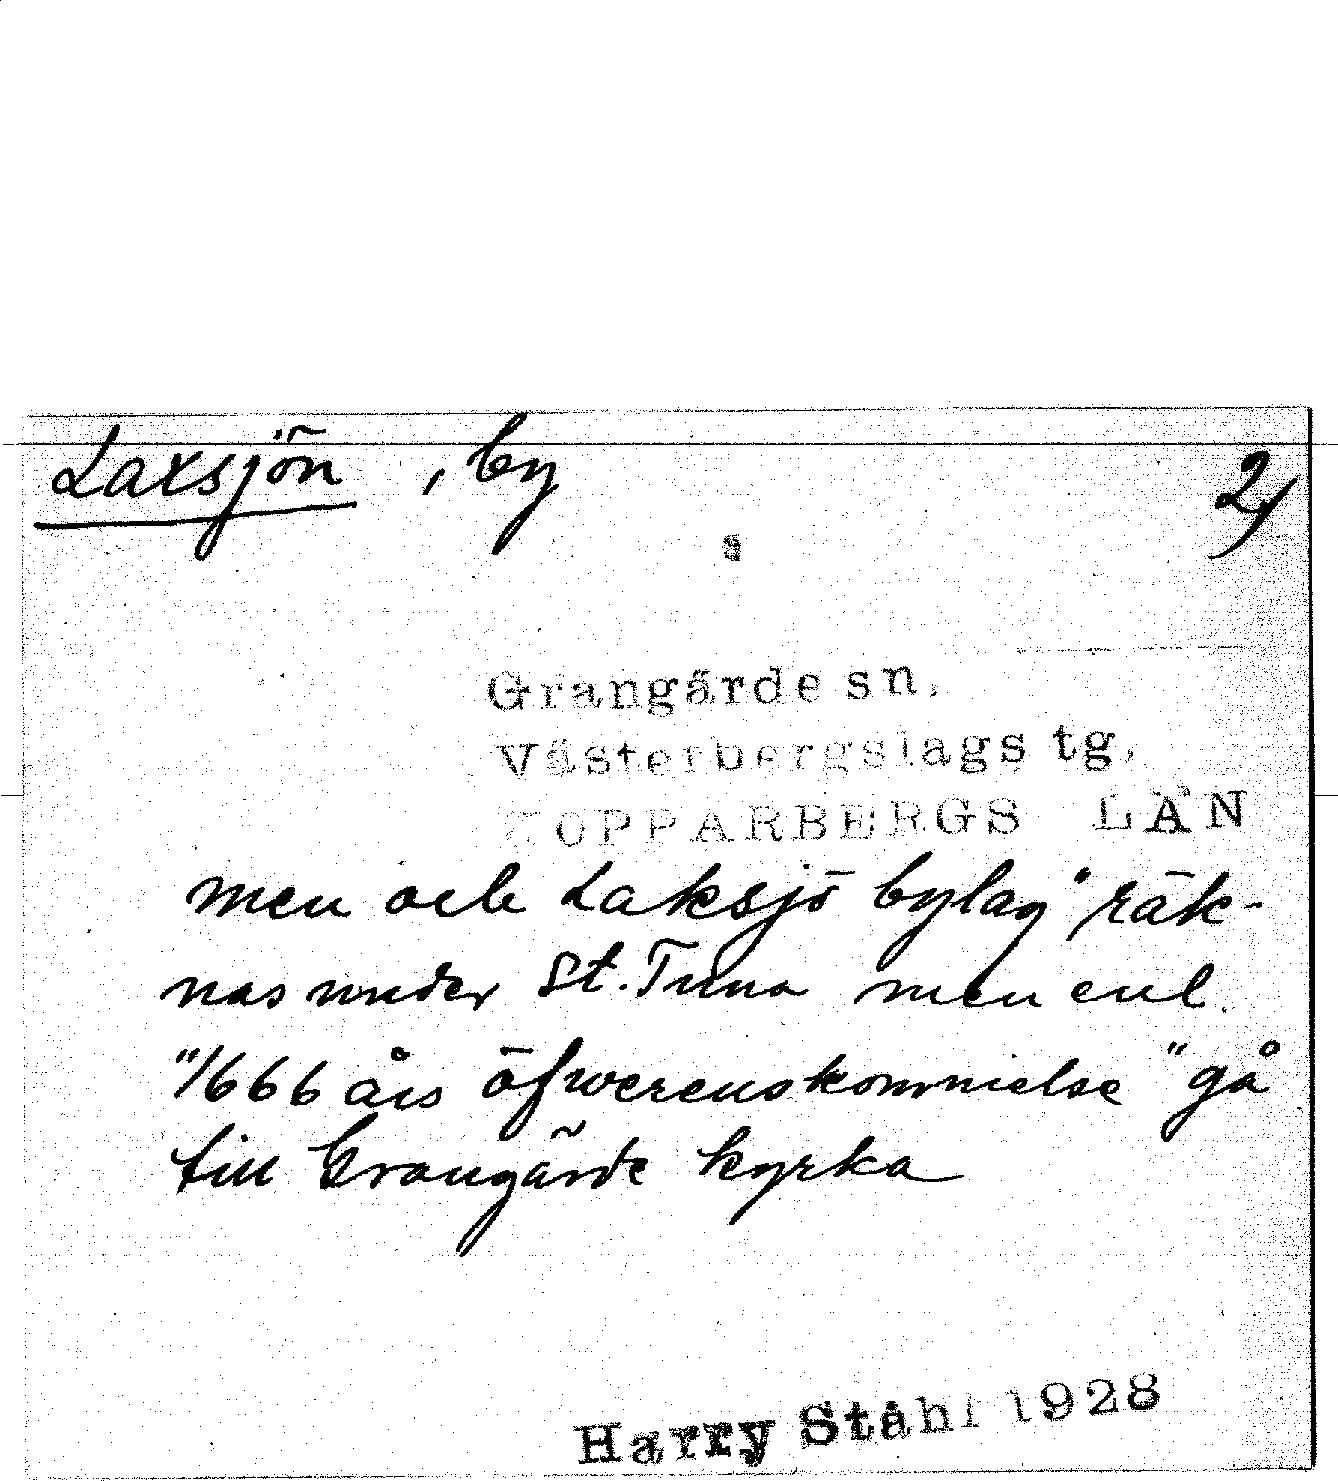 Laxsjön , by
2)
Grangärde sn.
Västerbergslags tg.
KOPPARBERGS LÄN
men och Laksjö bylag" räk-
nas under St. Tuna men enl.
"1666 års öfwerenskommelse" gå
till Grangärde kyrka
Harry Ståhl 1928